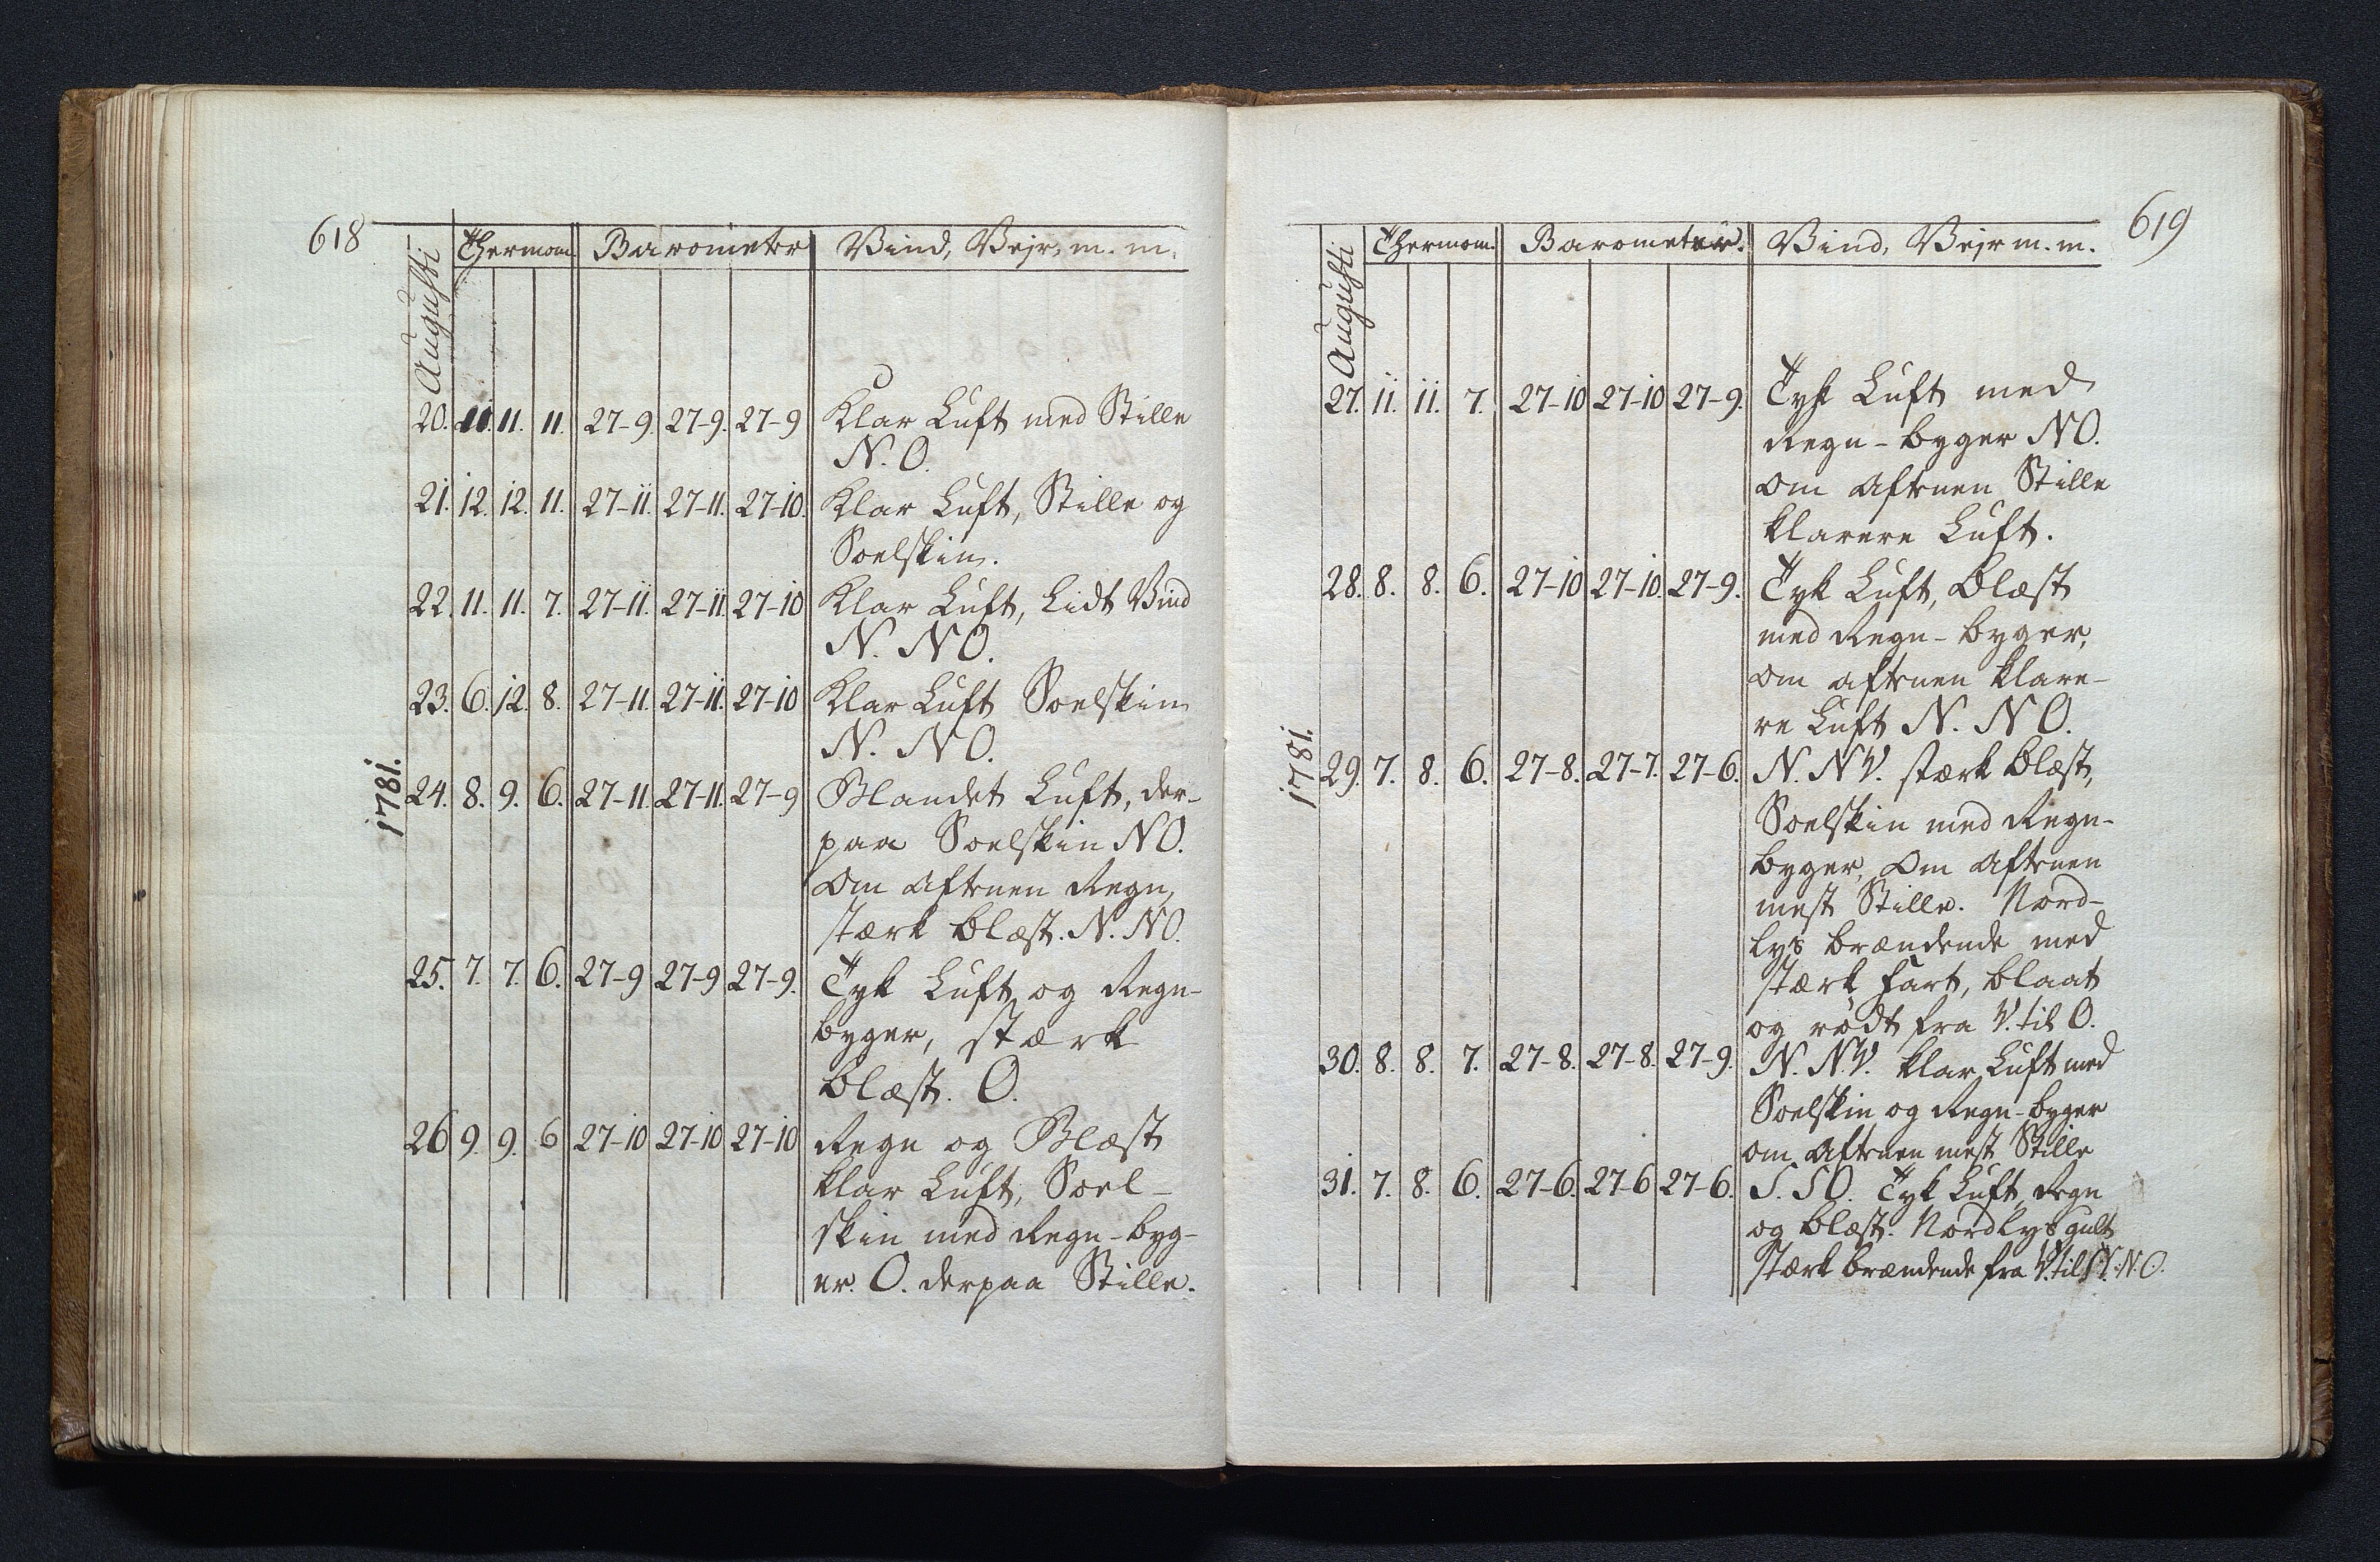 618
Augusti
Thermom Barometer Vind, Vejr, m. m.
20. 11. 11. 11. 27-9. 27-9. 27-9 Klar Luft med Stille
N. O.
21. 12. 12. 11. 27-11. 27-11. 27-10. Klar Luft, Stille og
Soelskin.
22. 11. 11. 7. 27-11. 27-11. 27-10 Klar Luft, Lidt Vind
N. NO.
23. 6. 12. 8. 27-11. 27-11. 27-10 Klar Luft Soelskin
N. NO.
1781.
24. 8. 9. 6. 27-11. 27-11. 27-9 Blandet Luft, der-
paa Soelskin NO.
Om Aftenen Regn,
stærk blæst. N. NO.
25. 7. 7. 6. 27-9 27-9 27-9. Tyk Luft og Regn-
byger, stærk
blæst. O.
26 9. 9. 6 27-10 27-10 27-10 Regn og Blæst
klar Luft, Soel-
skin med Regn-byg-
er. O. derpaa Stille.
619
Augusti
Thermom. Barometer. Vind, Vejr m. m.
27. 11. 11. 7. 27-10 27-10 27-9. Tyk Luft med
Regn-byger NO.
Om Aftenen Stille
klarere Luft.
28. 8. 8. 6. 27-10 27-10. 27-9. Tyk Luft, blæst
med Regn-byger,
om aftenen klare-
re Luft N. NO.
1781.
29. 7. 8. 6. 27-8. 27-7. 27-6. N. NV. stærk blæst,
Soelskin med Regn-
byger, Om Aftenen
mest Stille. Nord-
lys brændende med
stærk fart, blaat
og rødt fra V. til O.
30. 8. 8. 7. 27-8. 27-8. 27-9. N. N.V. klar Luft med
Soelskin og Regn-byger
om Aftenen mest Stille
31. 7. 8. 6. 27-6. 27-6 27-6. S. SO. Tyk Luft, Regn
og blæst. Nordlys gult
stærk brændende fra V. til N. O.